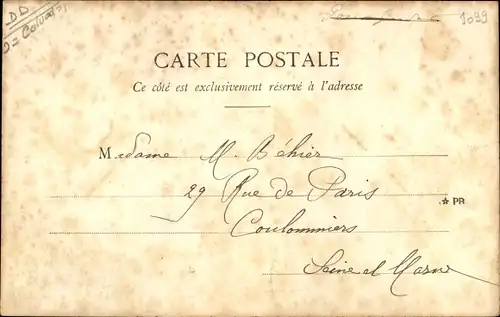 DD
1039
CARTE POSTALE
Ce côté est exclusivement réservé à l'adresse
Madame M. Béhier
29 Rue de Paris
✶ PR
Coulommiers
Seine et Marne